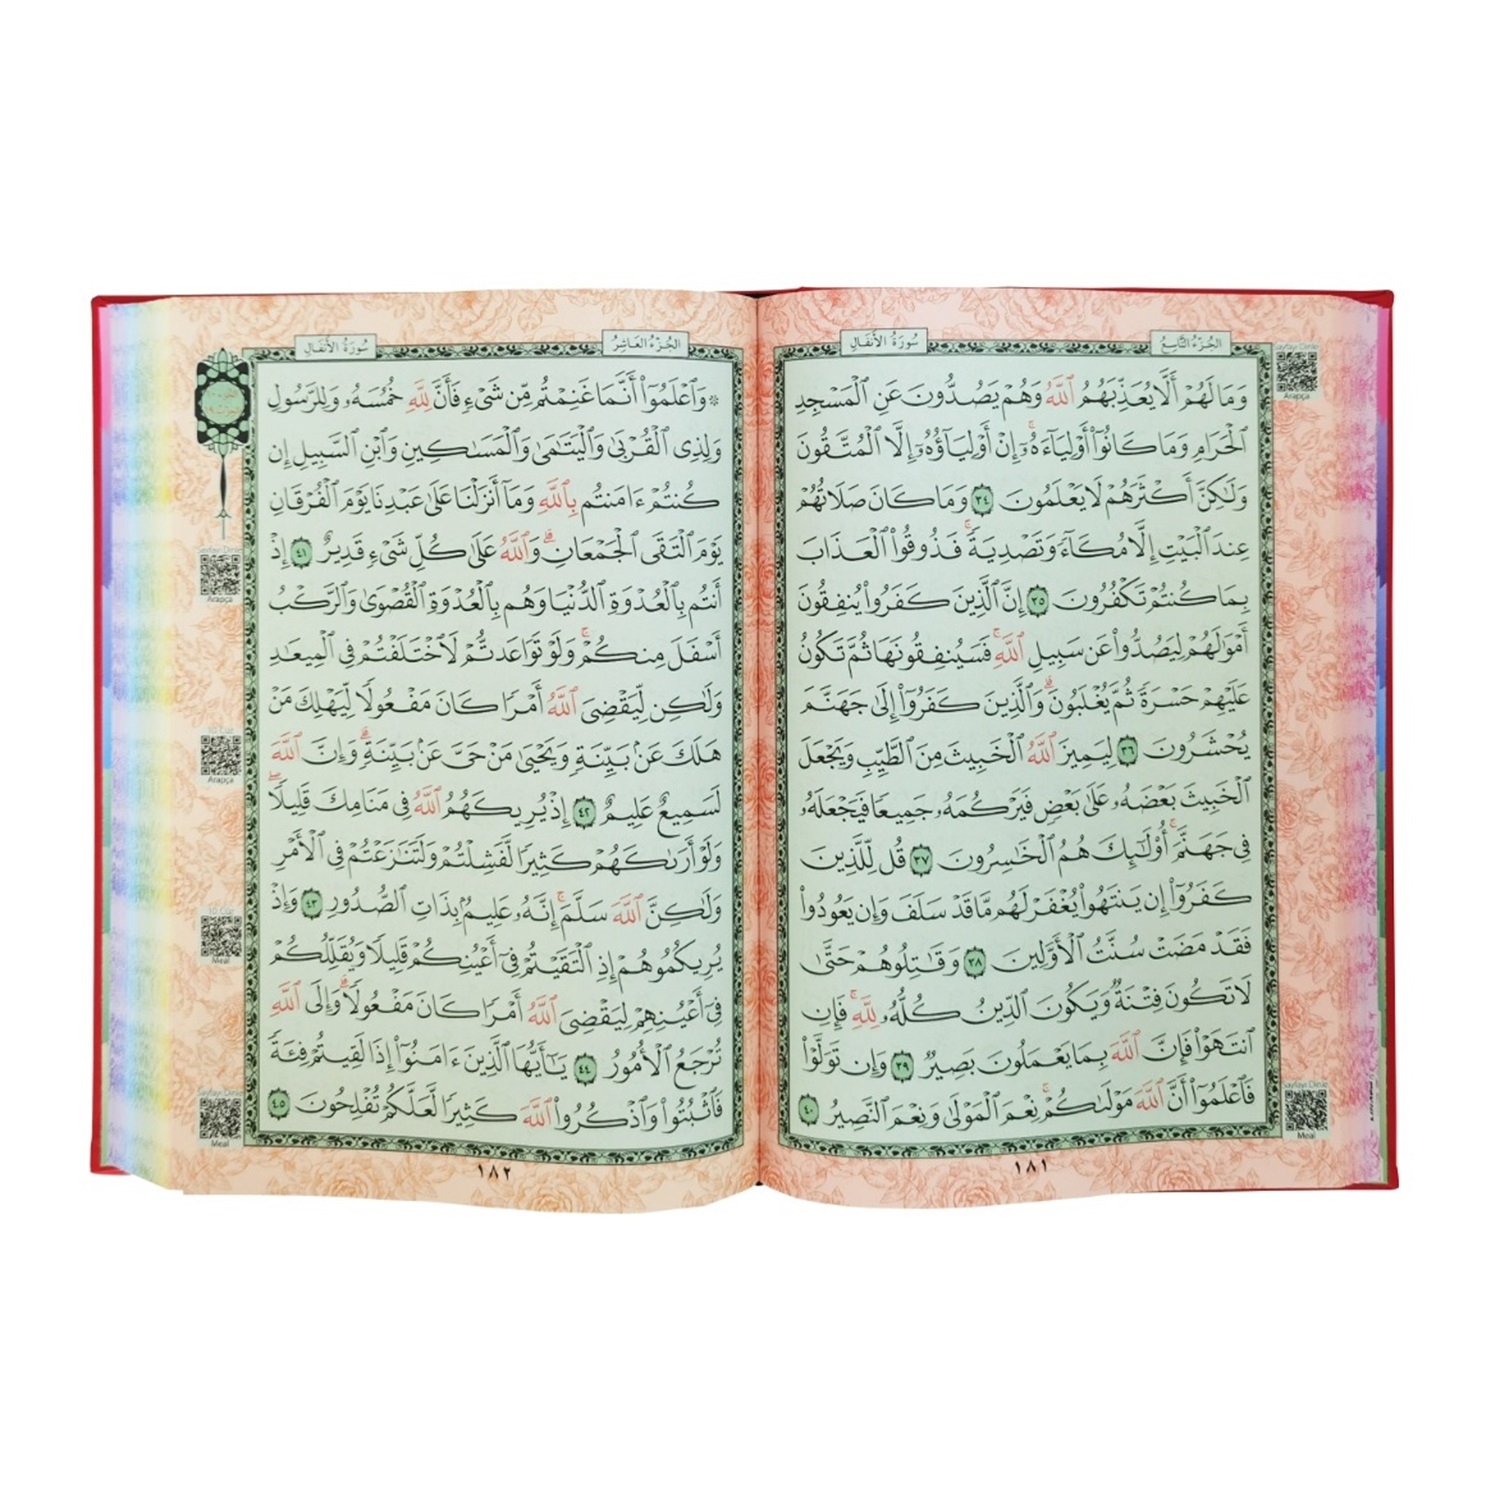 الجُزْءُ التَّاسِعُ
سُورَةُ الأَنفَالِ
وَمَا لَهُمْ أَلَّا يُعَذِّبَهُمُ ٱللَّهُ وَهُمْ يَصُدُّونَ عَنِ ٱلْمَسْجِدِ
ٱلْحَرَامِ وَمَا كَانُوٓا۟ أَوْلِيَآءَهُۥٓ ۚ إِنْ أَوْلِيَآؤُهُۥٓ إِلَّا ٱلْمُتَّقُونَ
وَلَٰكِنَّ أَكْثَرَهُمْ لَا يَعْلَمُونَ ٣٤ وَمَا كَانَ صَلَاتُهُمْ
عِندَ ٱلْبَيْتِ إِلَّا مُكَآءً وَتَصْدِيَةً ۚ فَذُوقُوا۟ ٱلْعَذَابَ
بِمَا كُنتُمْ تَكْفُرُونَ ٣٥ إِنَّ ٱلَّذِينَ كَفَرُوا۟ يُنفِقُونَ
أَمْوَٰلَهُمْ لِيَصُدُّوا۟ عَن سَبِيلِ ٱللَّهِ ۚ فَسَيُنفِقُونَهَا ثُمَّ تَكُونُ
عَلَيْهِمْ حَسْرَةً ثُمَّ يُغْلَبُونَ ۗ وَٱلَّذِينَ كَفَرُوٓا۟ إِلَىٰ جَهَنَّمَ
يُحْشَرُونَ ٣٦ لِيَمِيزَ ٱللَّهُ ٱلْخَبِيثَ مِنَ ٱلطَّيِّبِ وَيَجْعَلَ
ٱلْخَبِيثَ بَعْضَهُۥ عَلَىٰ بَعْضٍ فَيَرْكُمَهُۥ جَمِيعًا فَيَجْعَلَهُۥ
فِى جَهَنَّمَ ۚ أُو۟لَٰٓئِكَ هُمُ ٱلْخَٰسِرُونَ ٣٧ قُل لِّلَّذِينَ
كَفَرُوٓا۟ إِن يَنتَهُوا۟ يُغْفَرْ لَهُم مَّا قَدْ سَلَفَ وَإِن يَعُودُوا۟
فَقَدْ مَضَتْ سُنَّتُ ٱلْأَوَّلِينَ ٣٨ وَقَٰتِلُوهُمْ حَتَّىٰ
لَا تَكُونَ فِتْنَةٌ وَيَكُونَ ٱلدِّينُ كُلُّهُۥ لِلَّهِ ۚ فَإِنِ
ٱنتَهَوْا۟ فَإِنَّ ٱللَّهَ بِمَا يَعْمَلُونَ بَصِيرٌ ٣٩ وَإِن تَوَلَّوْا۟
فَٱعْلَمُوٓا۟ أَنَّ ٱللَّهَ مَوْلَىٰكُمْ ۚ نِعْمَ ٱلْمَوْلَىٰ وَنِعْمَ ٱلنَّصِيرُ ٤٠
١٨١
Arapça
Meal
الجُزْءُ العَاشِرُ
سُورَةُ الأَنفَالِ
۞ وَٱعْلَمُوٓا۟ أَنَّمَا غَنِمْتُم مِّن شَىْءٍ فَأَنَّ لِلَّهِ خُمُسَهُۥ وَلِلرَّسُولِ
وَلِذِى ٱلْقُرْبَىٰ وَٱلْيَتَٰمَىٰ وَٱلْمَسَٰكِينِ وَٱبْنِ ٱلسَّبِيلِ إِن
كُنتُمْ ءَامَنتُم بِٱللَّهِ وَمَآ أَنزَلْنَا عَلَىٰ عَبْدِنَا يَوْمَ ٱلْفُرْقَانِ
يَوْمَ ٱلْتَقَى ٱلْجَمْعَانِ ۗ وَٱللَّهُ عَلَىٰ كُلِّ شَىْءٍ قَدِيرٌ ٤١ إِذْ
أَنتُم بِٱلْعُدْوَةِ ٱلدُّنْيَا وَهُم بِٱلْعُدْوَةِ ٱلْقُصْوَىٰ وَٱلرَّكْبُ
أَسْفَلَ مِنكُمْ ۚ وَلَوْ تَوَاعَدتُّمْ لَٱخْتَلَفْتُمْ فِى ٱلْمِيعَٰدِ
وَلَٰكِن لِّيَقْضِىَ ٱللَّهُ أَمْرًا كَانَ مَفْعُولًا لِّيَهْلِكَ مَنْ
هَلَكَ عَنۢ بَيِّنَةٍ وَيَحْيَىٰ مَنْ حَىَّ عَنۢ بَيِّنَةٍ ۗ وَإِنَّ ٱللَّهَ
لَسَمِيعٌ عَلِيمٌ ٤٢ إِذْ يُرِيكَهُمُ ٱللَّهُ فِى مَنَامِكَ قَلِيلًا ۖ
وَلَوْ أَرَىٰكَهُمْ كَثِيرًا لَّفَشِلْتُمْ وَلَتَنَٰزَعْتُمْ فِى ٱلْأَمْرِ
وَلَٰكِنَّ ٱللَّهَ سَلَّمَ ۚ إِنَّهُۥ عَلِيمٌۢ بِذَاتِ ٱلصُّدُورِ ٤٣ وَإِذْ
يُرِيكُمُوهُمْ إِذِ ٱلْتَقَيْتُمْ فِىٓ أَعْيُنِكُمْ قَلِيلًا وَيُقَلِّلُكُمْ
فِىٓ أَعْيُنِهِمْ لِيَقْضِىَ ٱللَّهُ أَمْرًا كَانَ مَفْعُولًا ۗ وَإِلَى ٱللَّهِ
تُرْجَعُ ٱلْأُمُورُ ٤٤ يَٰٓأَيُّهَا ٱلَّذِينَ ءَامَنُوٓا۟ إِذَا لَقِيتُمْ فِئَةً
فَٱثْبُتُوا۟ وَٱذْكُرُوا۟ ٱللَّهَ كَثِيرًا لَّعَلَّكُمْ تُفْلِحُونَ ٤٥
١٨٢
Arapça
Arapça
Meal
Meal